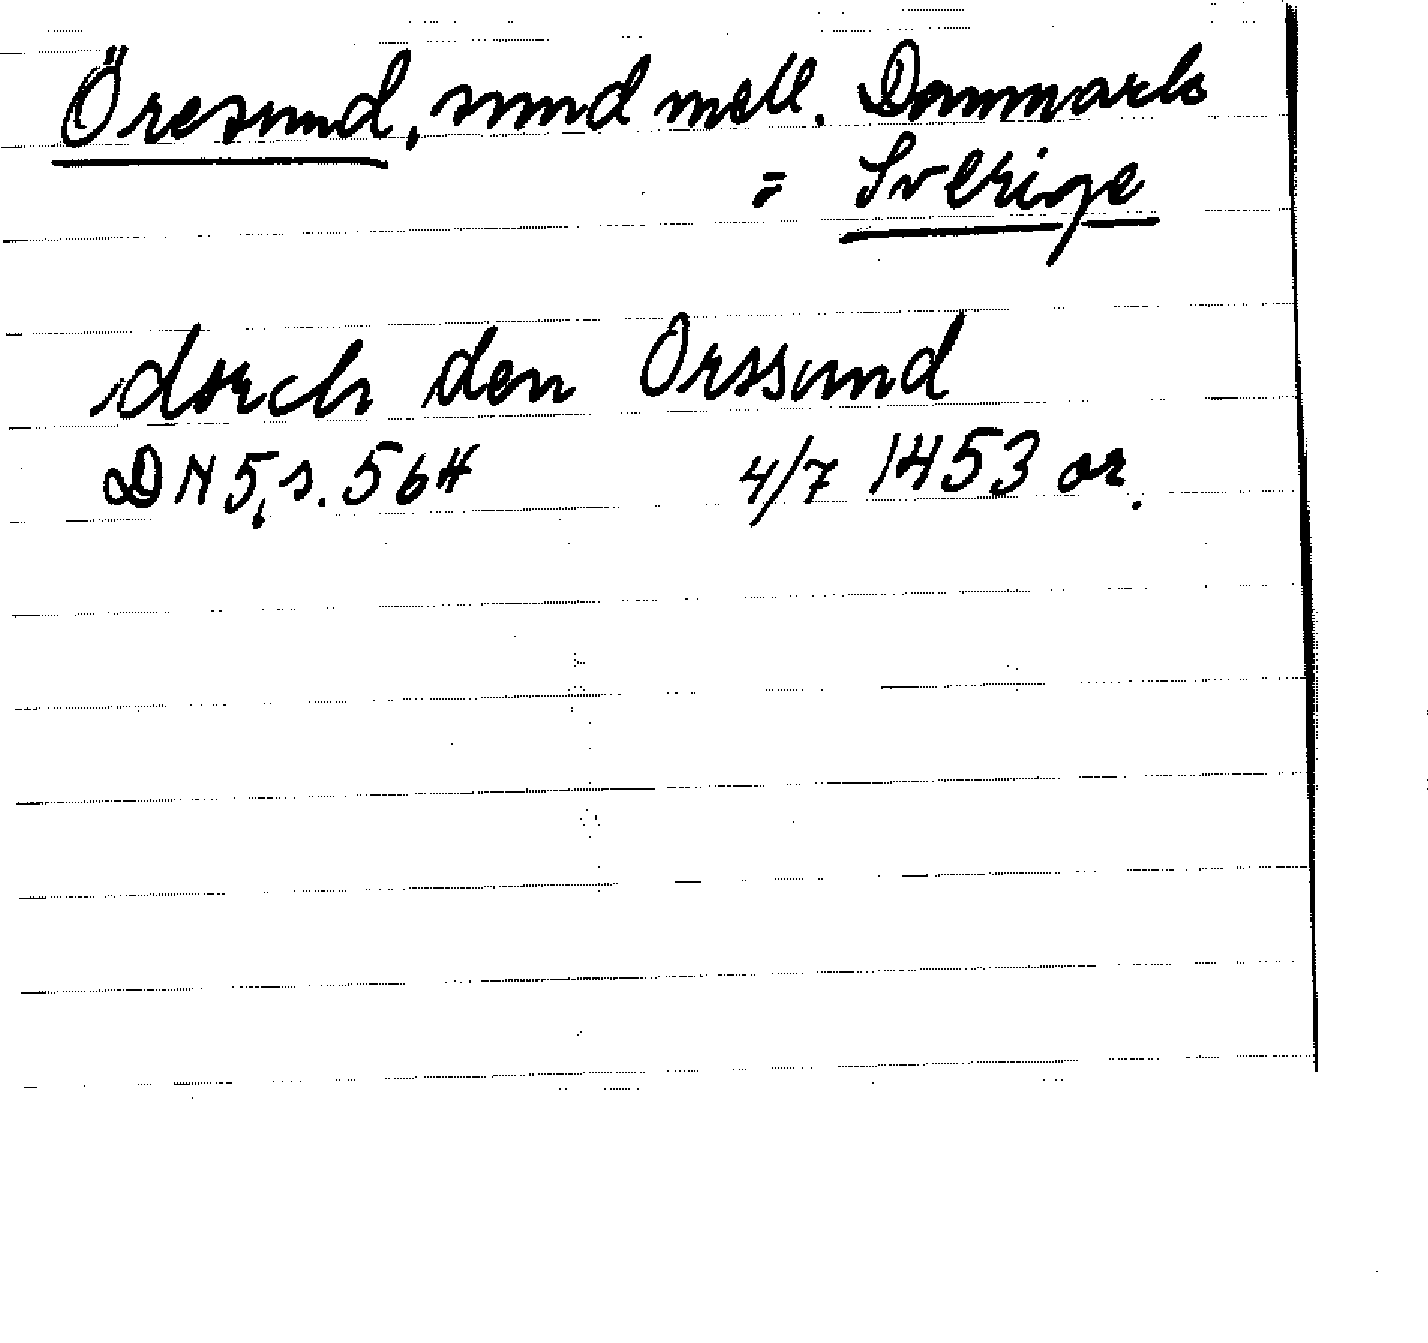 Öresund, sund mell. Danmark
= Sverige
dorch den Orssund
DN 5, s. 564 4/7 1453 or.